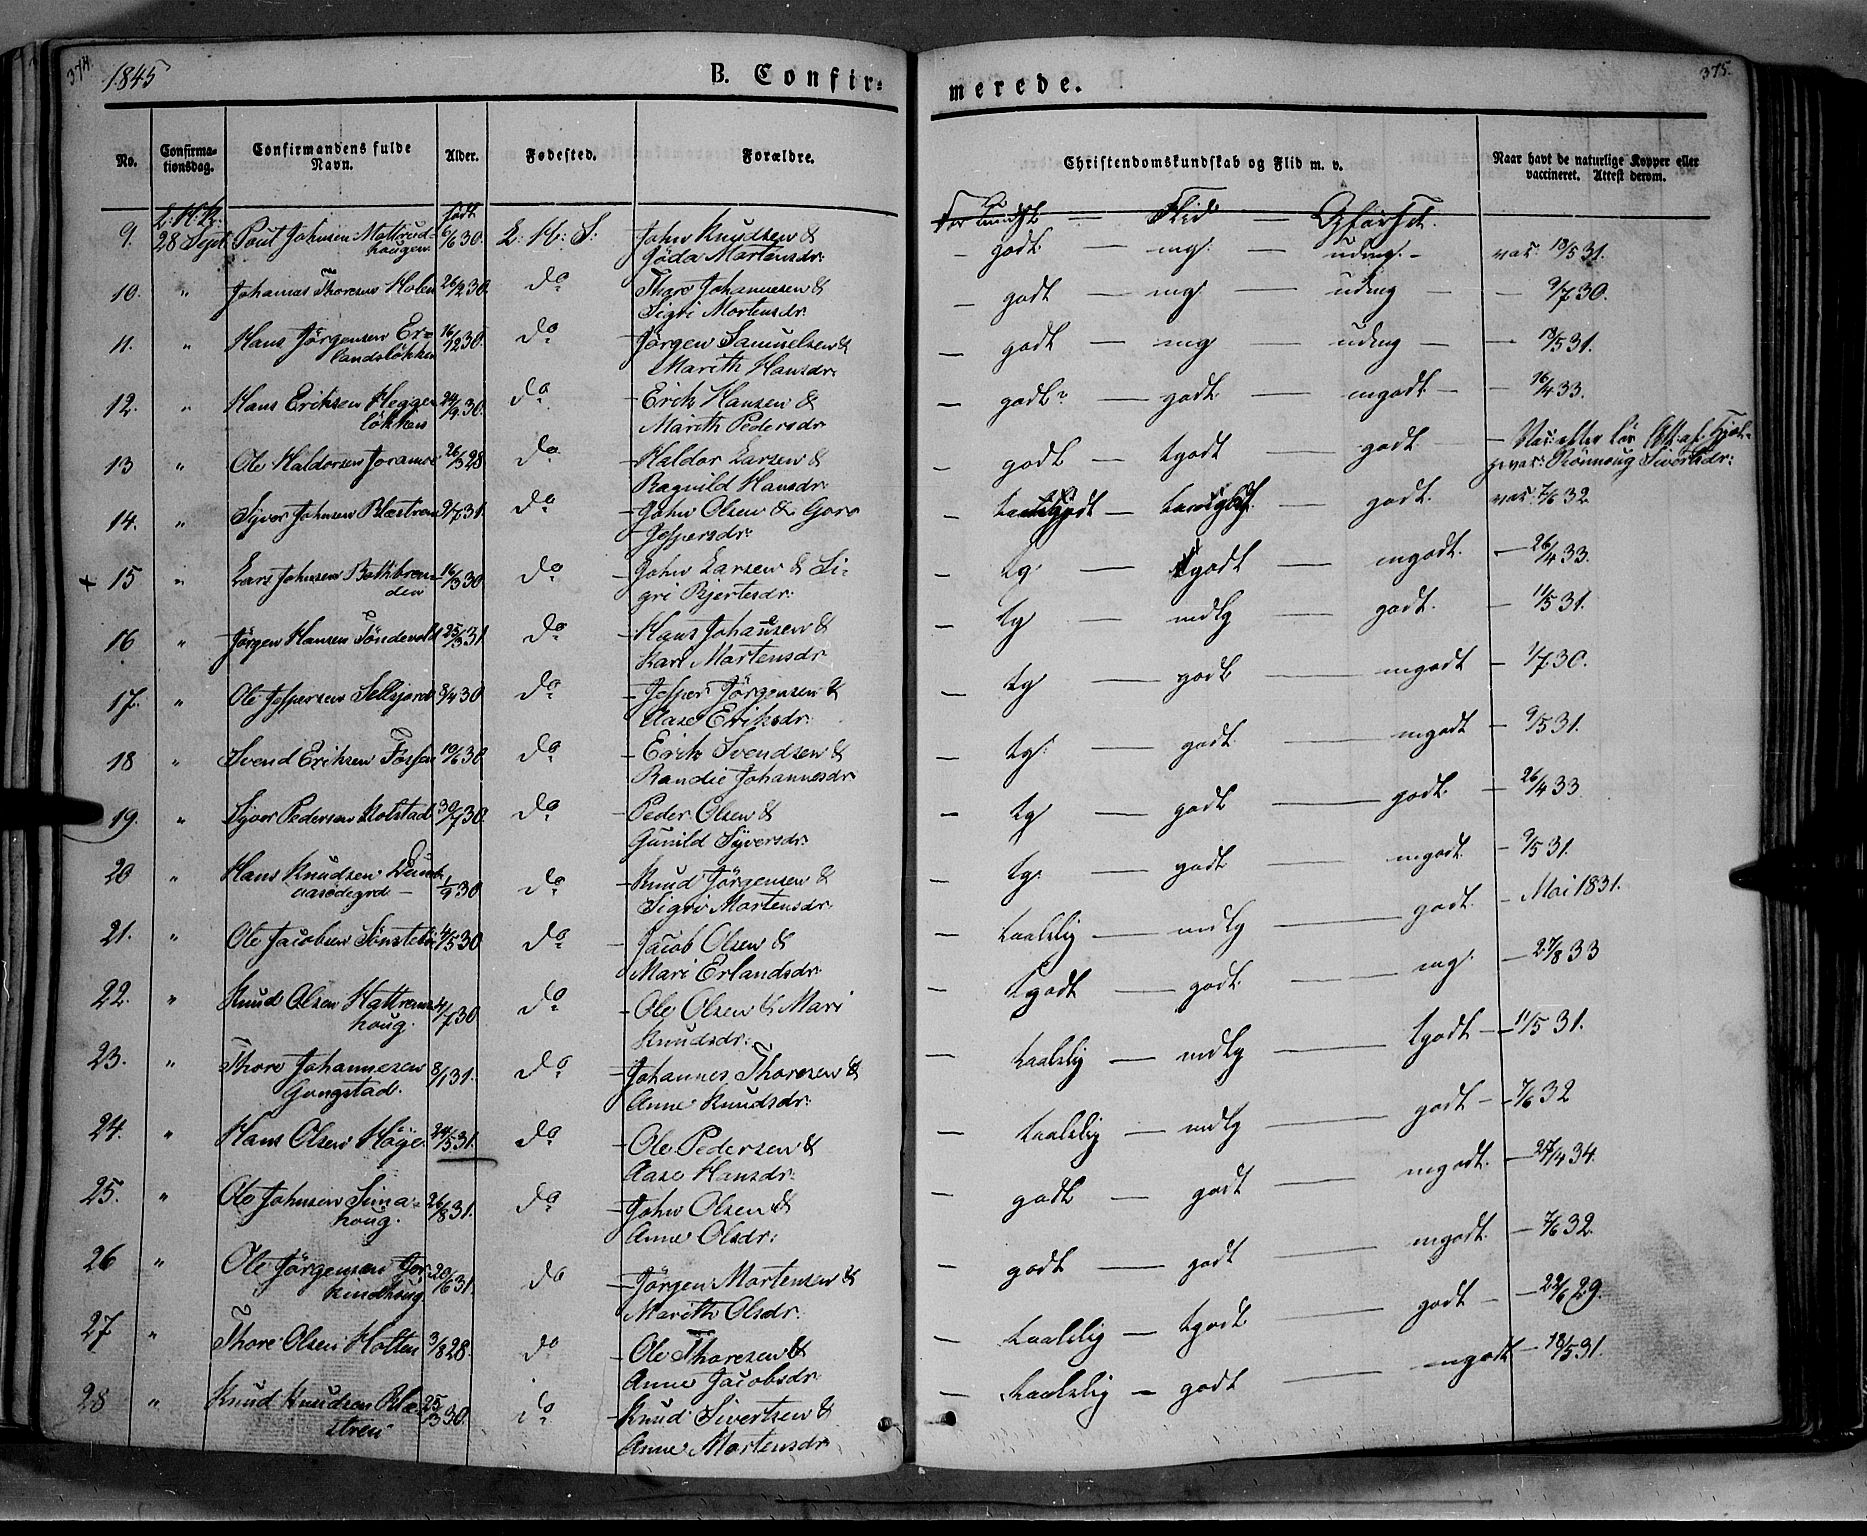 374.
1845
B. Confir=
merede.
375.
No.
Confirma=
tionsdag.
Confirmandens fulde
Navn.
Alder.
Fødested.
Forældre.
Christendomskundskab og Flid m. v.
Naar havt de naturlige Kopper eller
vaccineret. Attest derom.
født
Flid
9. 28 Sept. Poul Johnsen 6/6 30. L: H: S: John Knudsen &
Goda Martensdr:
godt mg. udmg. vac. 18/5 31.
10. " Johannes Thoresen Holen 26/2 30. do Thore Johannesen &
Sigri Mortensdr.
godt mg. udmg 9/7 30.
11. " Hans Jörgensen Er=
landsløkken 16/12 30. do Jörgen Samuelsen &
Marith Hansdr:
godt mg udmg 18/5 31.
12. " Hans Eriksen Hegge
løkken 24/9 30. do Erik Hansen &
Marith Pedersdr
godt godt mgodt 16/4 33.
13 " Ole Haldorsen Joramo 26/3 28 do Haldor Larsen &
Ragnild Hansdr:
godt tgodt godt
Rönnoug Sivertsdr:
14. " Syver Johnsen Blæstren 9/7 31. do John Olsen & Goro
Jespersdr:
godt. vac. 7/6 32
+ 15 " Lars Johnsen Bothbren=
den 16/3 30 do John Larsen & Si=
gri Bjertesdr:
tg. tgodt mgodt. 26/4 33.
16 " Jörgen Hansen Töndevold 25/3 31. do Hans Johansen &
Kari Martensdr
tg mdlg godt. 11/5 31.
17. " Ole Jespersen Selsjord 8/4 30 do Jesper Jörgensen &
Aase Eriksdr:
tg godt mgodt 1/7 30.
18 " Svend Eriksen Fossen 19/6 30 do Erik Svendsen &
Randie Johannesdr
tg. godt mgodt 9/5 31.
19. " Syver Pedersen Kolstad 30/7 30. do Peder Olsen &
Gunild Syversdr:
tg godt godt. 26/4 33
20 " Hans Knudsen 1/9 30 do Knud Jörgensen &
Sigri Martensdr.
tg. godt mgodt 9/5 31.
21. " Ole Jacobsen Sönstebø 4/5 30 do Jacob Olsen &
Mari Erlandsdr.
taalelig mdlg godt. Mai 1831.
22. " Knud Olsen Hattrems
houg. 4/7 30 do Ole Olsen & Mari
Knudsdr:
tgodt godt. mg. 27/8 33
23. " Thore Johannesen
Gongstad. 8/1 31. do Johannes Thoresen &
Anne Knudsdr:
taalelig mdlg tgodt 11/5 31.
24. " Hans Olsen Höye 24/5 31. do Ole Pedersen &
Aase Hansdr:
taalelig mdlg godt 7/6 32
25. " Ole Johnsen Sima=
houg. 26/8 31. do John Olsen &
Anne Olsdr:
godt godt mgodt. 27/4 34.
26 " Ole Jörgensen Jor=
kindhoug 20/6 31. do Jörgen Mortensen &
Marith Olsdr.
godt godt mgodt. 7/6 32.
27 " Thore Olsen Hotten 3/8 28. do Ole Thoresen &
Anne Jacobsdr
taalelig tgodt godt 22/6 29.
28 " Knud Knudsen Blæ=
stren 25/3 30. do Knud Sivertsen &
Anne Martensdr
taalelig godt mgodt 18/5 31.